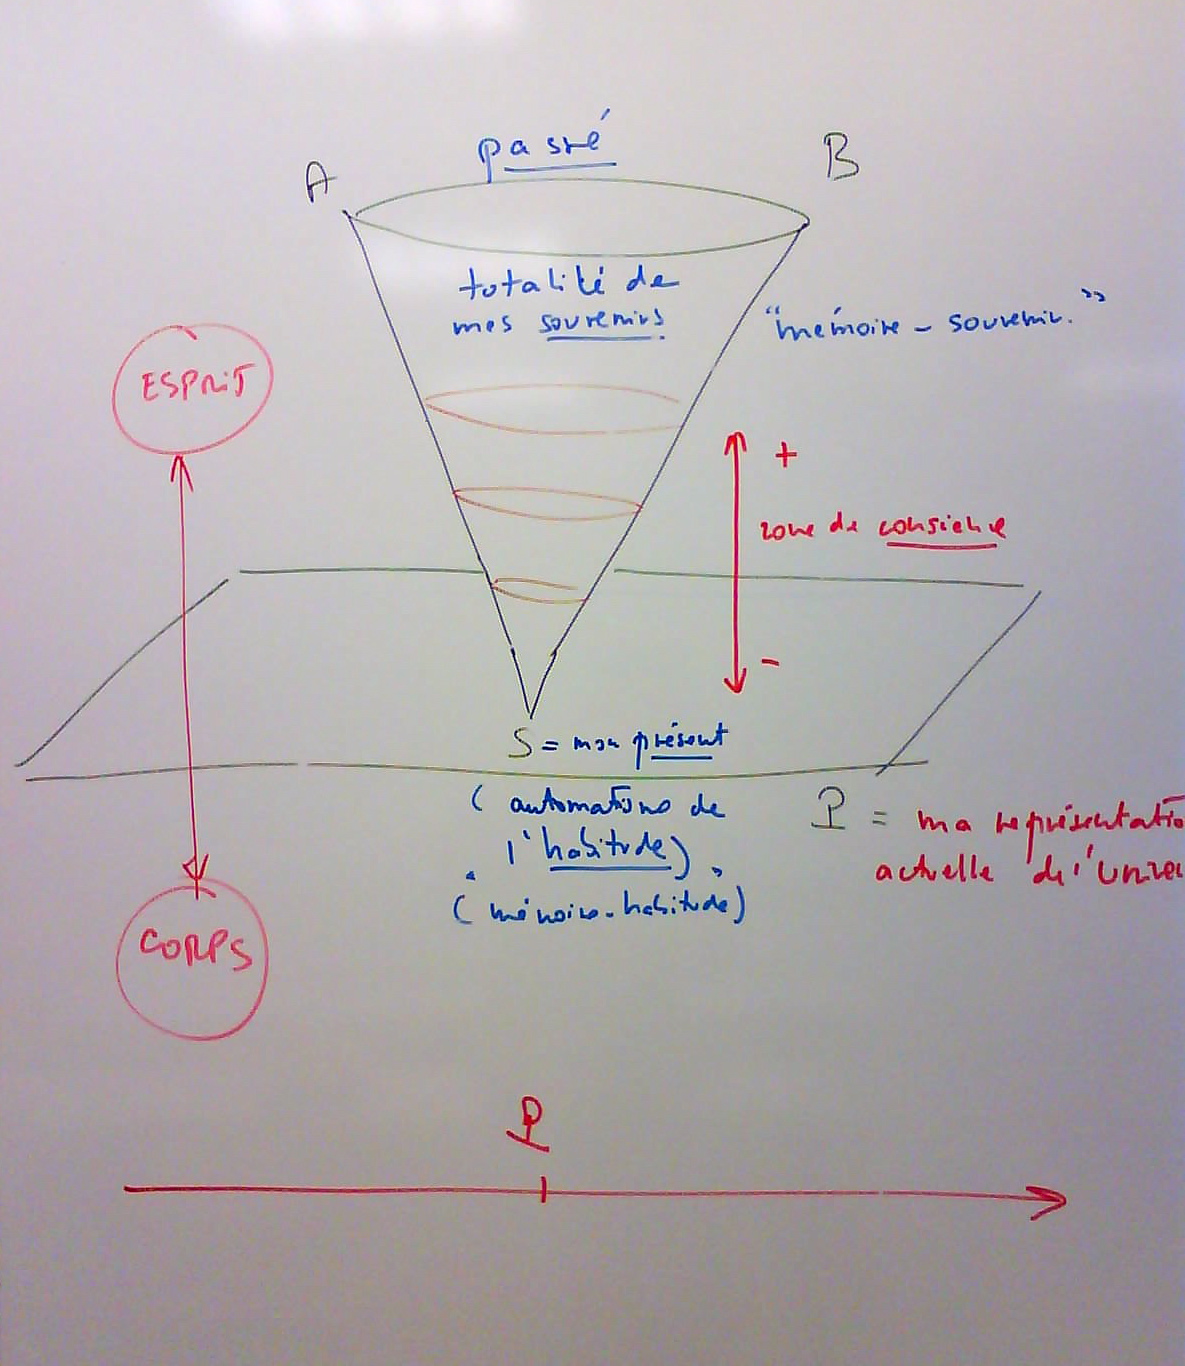 passé
A
B
totalité de
mes souvenirs
"mémoire - souvenir."
ESPRIT
+
zone de consience
-
S = mon présent
(automatismes de
l'habitude)
("mémoire-habitude")
P = ma représentatio
actuelle de l'univer
CORPS
P